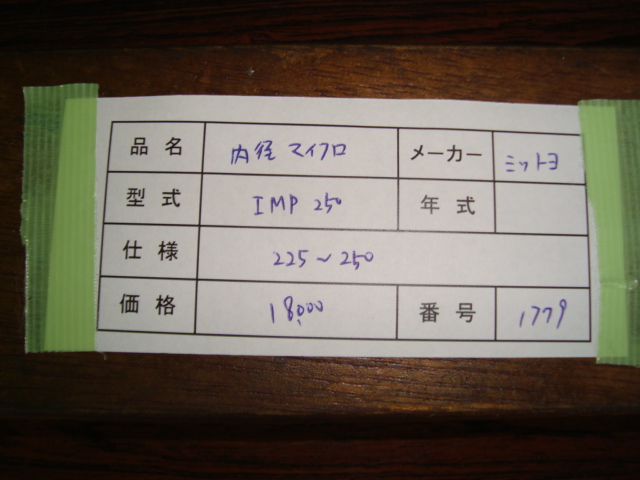 品名 内径マイクロ メーカー ミツトヨ
型式 IMP 250 年式
仕様 225~250
価格 18,000 番号 1779